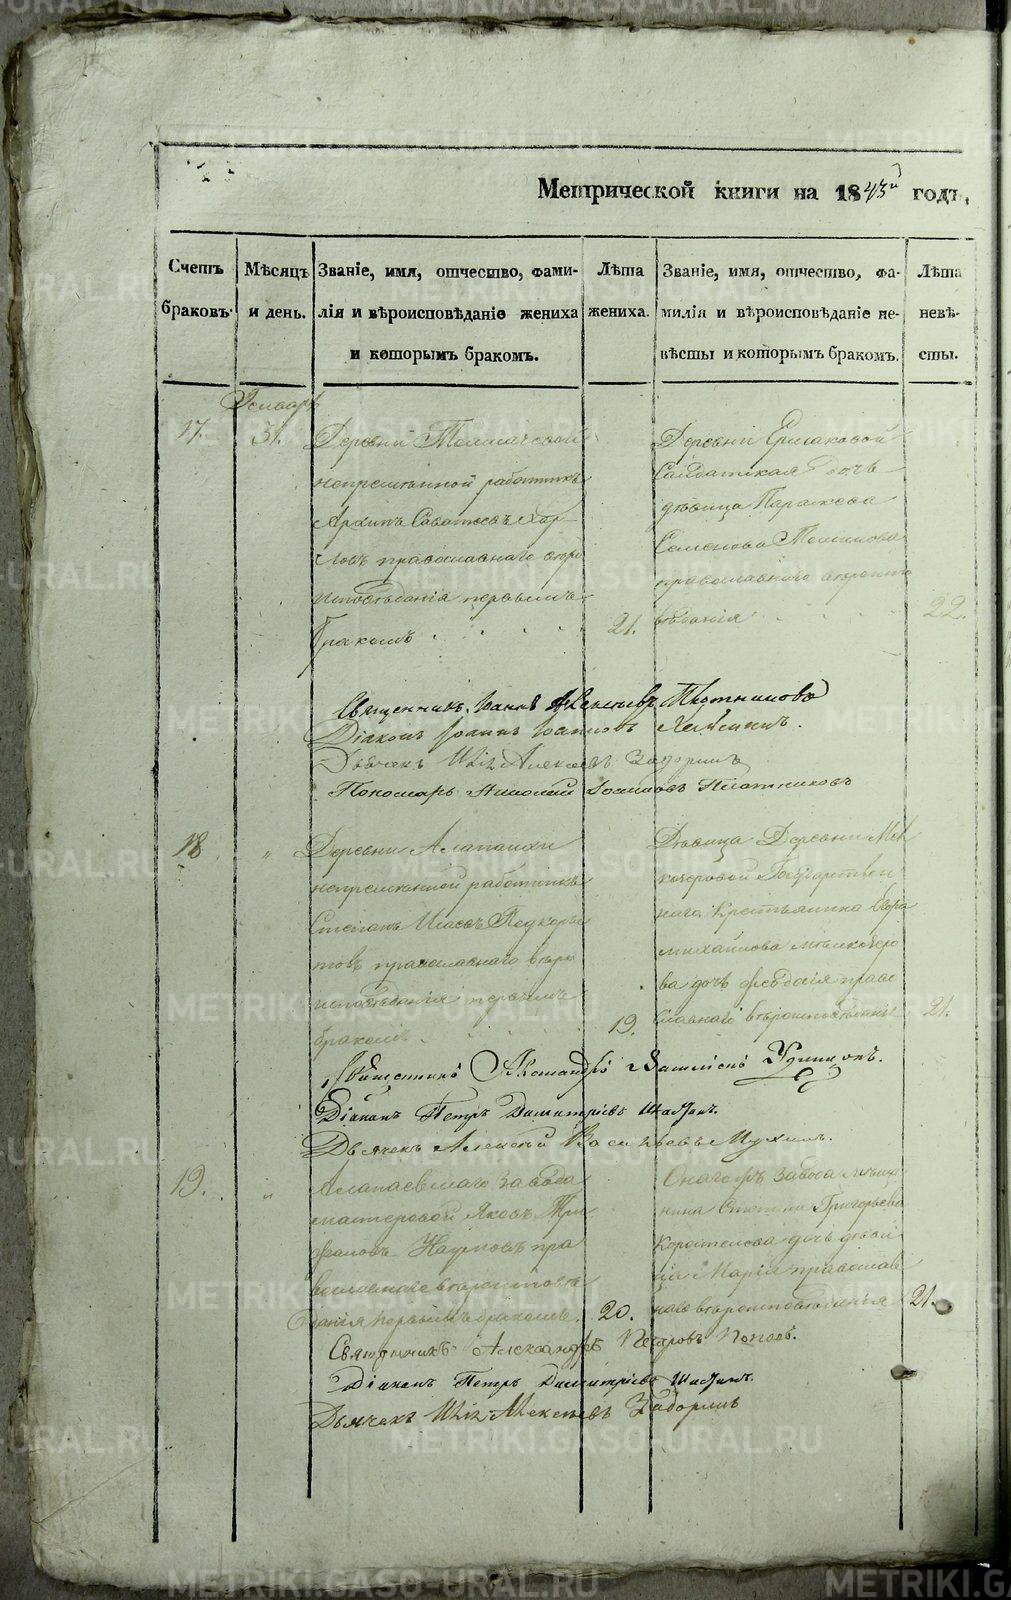 Метрической книги на 1843й годъ,
Счетъ браковъ.
Мѣсяцъ и день.
Званіе, имя, отчество, фами-
лія и вѣроисповѣданіе жениха
и которымъ бракомъ.
Лѣта
жениха.
Званіе, имя, отчество, фа-
милія и вѣроисповѣданіе не-
вѣсты и которымъ бракомъ.
Лѣта
невѣ-
сты.
Генварь
17.
31.
Деревни
непремѣнной работникъ
Архипъ Саватеевъ Кар-
ловъ православнаго вѣро
исповѣданія первымъ
бракомъ
21.
Деревни Ермаковой
Салдатская дочь
дѣвица Параскева
Семенова
православнаго вѣроиспо
вѣданія
22.
Священникъ Іоаннъ Алексѣевъ Плотниковъ
Діаконъ Іоаннъ Іоанновъ
Дьячекъ Илія Алексѣевъ Задоринъ
Пономарь Николай Іоанновъ Плотниковъ
18
"
Деревни Алапаихи
непремѣнной работникъ
Степанъ Исаевъ Подкоры
товъ православнаго вѣро
исповѣданія первымъ
бракомъ
19.
Дѣвица Деревни Мел
козеровой Государствен
наго Крестьянина
Михайлова Мѣлкозеро
ва дочь Ѳеодосія право
славнаго вѣроисповѣданія
21.
Священникъ Александръ Удинцовъ.
Діаконъ Петръ Димитріевъ
Дьячекъ Алексѣй Васильевъ Мухинъ.
19.
"
Алапаевскаго завода
мастеровой Яковъ Три
фановъ Наумовъ пра
вославнаго вѣроисповѣ
данія первымъ бракомъ.
20.
Онагожъ завода
Григорьева
Коростелева дочь дѣви
ца Марія православ
наго вѣроисповѣданія
21.
Священникъ Александръ Петровъ Поповъ.
Діаконъ Петръ Димитріевъ
Дьячекъ Илія Алексѣевъ Задоринъ
METRIKI.GASO-URAL.RU